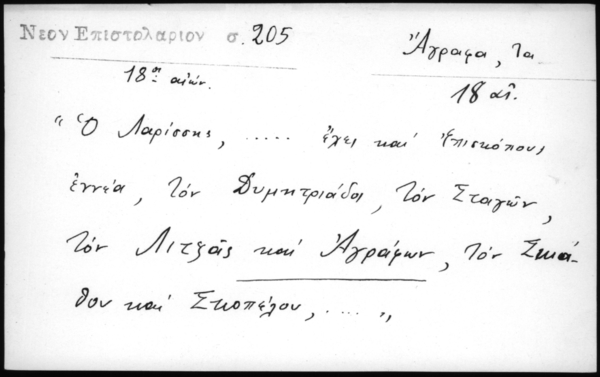 Νεον Επιστολαριον σ. 205
Ἄγραφα, τα
18ος αἰών.
18 αἰ.
"Ὁ Λαρίσσης, ..... ἔχει καί Ἐπισκόπους
ἐννέα, τόν Δυμητριάδα, τόν Σταγῶν,
τόν Λιτζᾶς καί Ἀγράφων, τόν Σκιά-
θου καί Σκοπέλου, ..... "